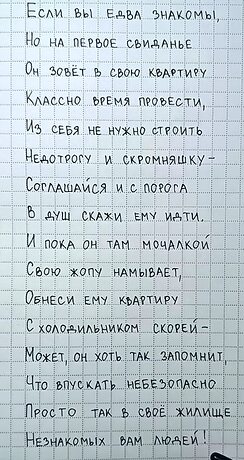 Если вы едва знакомы,
Но на первое свиданье
Он зовёт в свою квартиру
Классно время провести,
Из себя не нужно строить
Недотрогу и скромняшку –
Соглашайся и с порога
В душ скажи ему идти.
И пока он там мочалкой
Свою жопу намывает,
Обнеси ему квартиру
С холодильником скорей –
Может, он хоть так запомнит,
Что впускать небезопасно
Просто так в своё жилище
Незнакомых вам людей!